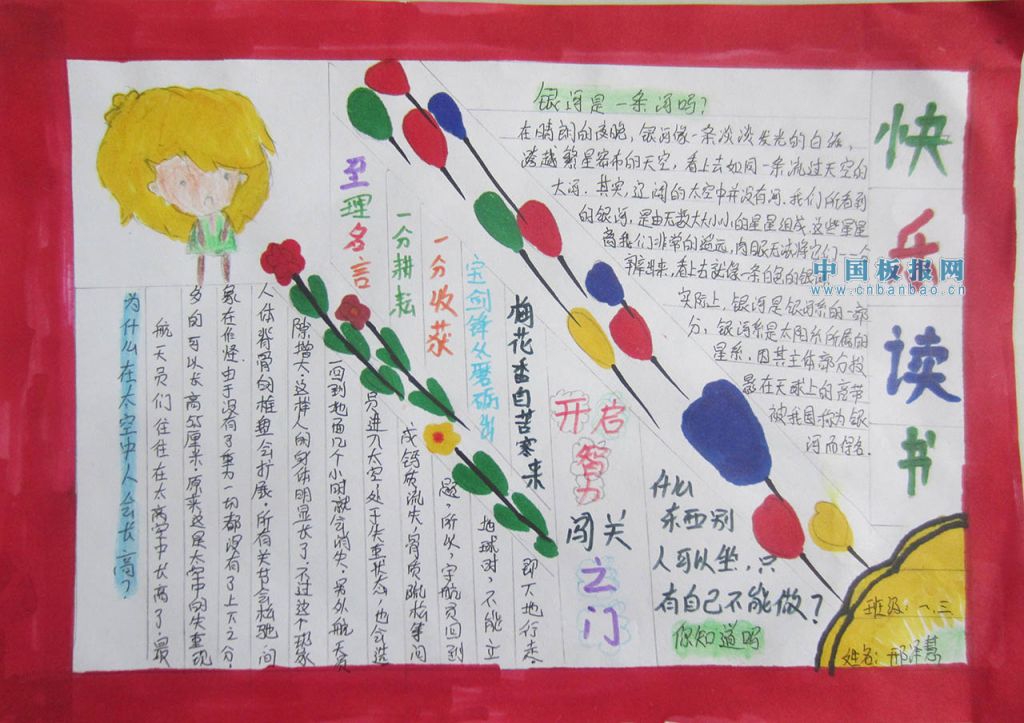 快乐读书
银河是一条河吗?
在晴朗的夜晚，银河像一条淡淡发光的白带，
跨越繁星密布的天空，看上去如同一条流过天空的
大河。其实，辽阔的太空中并没有河。我们所看到
的银河，是由无数大大小小的星星组成，这些星星
离我们非常的遥远，肉眼无法将它们一个
辨出来，看上去就像一条白色的银
实际上，银河是银河系的一部
分，银河系是太阳系所属的
星系，因其主体部分投
影在天球上的亮带
被我国称为银
河而得名.
中国板报网
www.cnbanbao.cn
至理名言
一分耕耘
一分收获
宝剑锋从磨砺出
梅花香自苦寒来
为什么在太空中人会长高?
航天员们往往在太空中长高了最
多的可以长高5.5厘米.原来这是太空中的失重现
象在作怪.由于没有了重力一切都没有了上下之分.
人体脊骨的椎盘会扩展,所有关节会松弛间
隙增大.这样人的身体明显长了.不过这个现象
一回到地面几个小时就会消失.另外航天
员进入太空,处于失重状态,也会造
成钙质流失,骨质疏松等问
题,所以,宇航员回到
地球时,不能立
即下地行走.
开启
智力
闯关
之门
什么
东西别
人可以坐，只
有自己不能做？
你知道吗
班级:一.三
姓名:邢泽慧